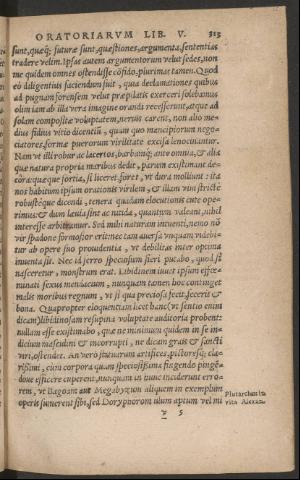 ORATORIARVM LIB. V. 313
sunt, quæq; futuræ sunt, quæstiones, argumenta, sententias
tradere velim. Ipsas autem argumentorum velut sedes, non
me quidem omnes ostendisse cōfido, plurimas tamen. Quod
eò diligentius faciendum fuit, quia declamationes quibus
ad pugnam forensem velut præpilatis exerceri solebamus
olim iam ab illa vera imagine orandi recesserunt, atque ad
solam compositæ voluptatem, neruis carent, non alio me-
dius fidius vitio dicentiū, quàm quo mancipiorum nego-
ciatores, formæ puerorum virilitate excisa lenocinantur.
Nam vt illi robur ac lacertos, barbamq; ante omnia, & alia
quæ natura propria maribus dedit, parum existimant de-
cora: quæque fortia, si liceret, forēt, vt dura molliunt: ita
nos habitum ipsum orationis virilem, & illam vim strictè
robustéque dicendi, tenera quadam elocutionis cute ope-
rimus: & dum læuia sint ac nitida, quantùm valeant, nihil
interesse arbitramur. Sed mihi naturam intuenti, nemo nō
vir spadone formosior erit: nec tam auersa vnquam videbi-
tur ab opere suo prouidentia, vt debilitas inter optima
inuenta sit. Nec id ferro speciosum fieri putabo, quod si
nasceretur, monstrum erat. Libidinem iuuet ipsum effœ-
minati sexus mendacium, nunquam tamen hoc continget
malis moribus regnum, vt si qua preciosa fecit, fecerit &
bona. Quapropter eloquentiam licet hanc (vt sentio enim
dicam) libidinosam resupina voluptate auditoria probent:
nullam esse existimabo, quæ ne minimum quidem in se in-
dicium masculini & incorrupti, ne dicam grauis & sancti
viri, ostendet. An verò statuarum artifices, pictoresq; cla-
rissimi, cùm corpora quàm speciosissima fingendo pingen-
doue efficere cuperent, nunquam in hunc inciderunt erro-
rem, vt Bagoam aut Megabyzum aliquem in exemplum
operis sumerent sibi, sed Doryphorum illum aptum vel mi
Plutarchus in
vita Alexan.
V 5